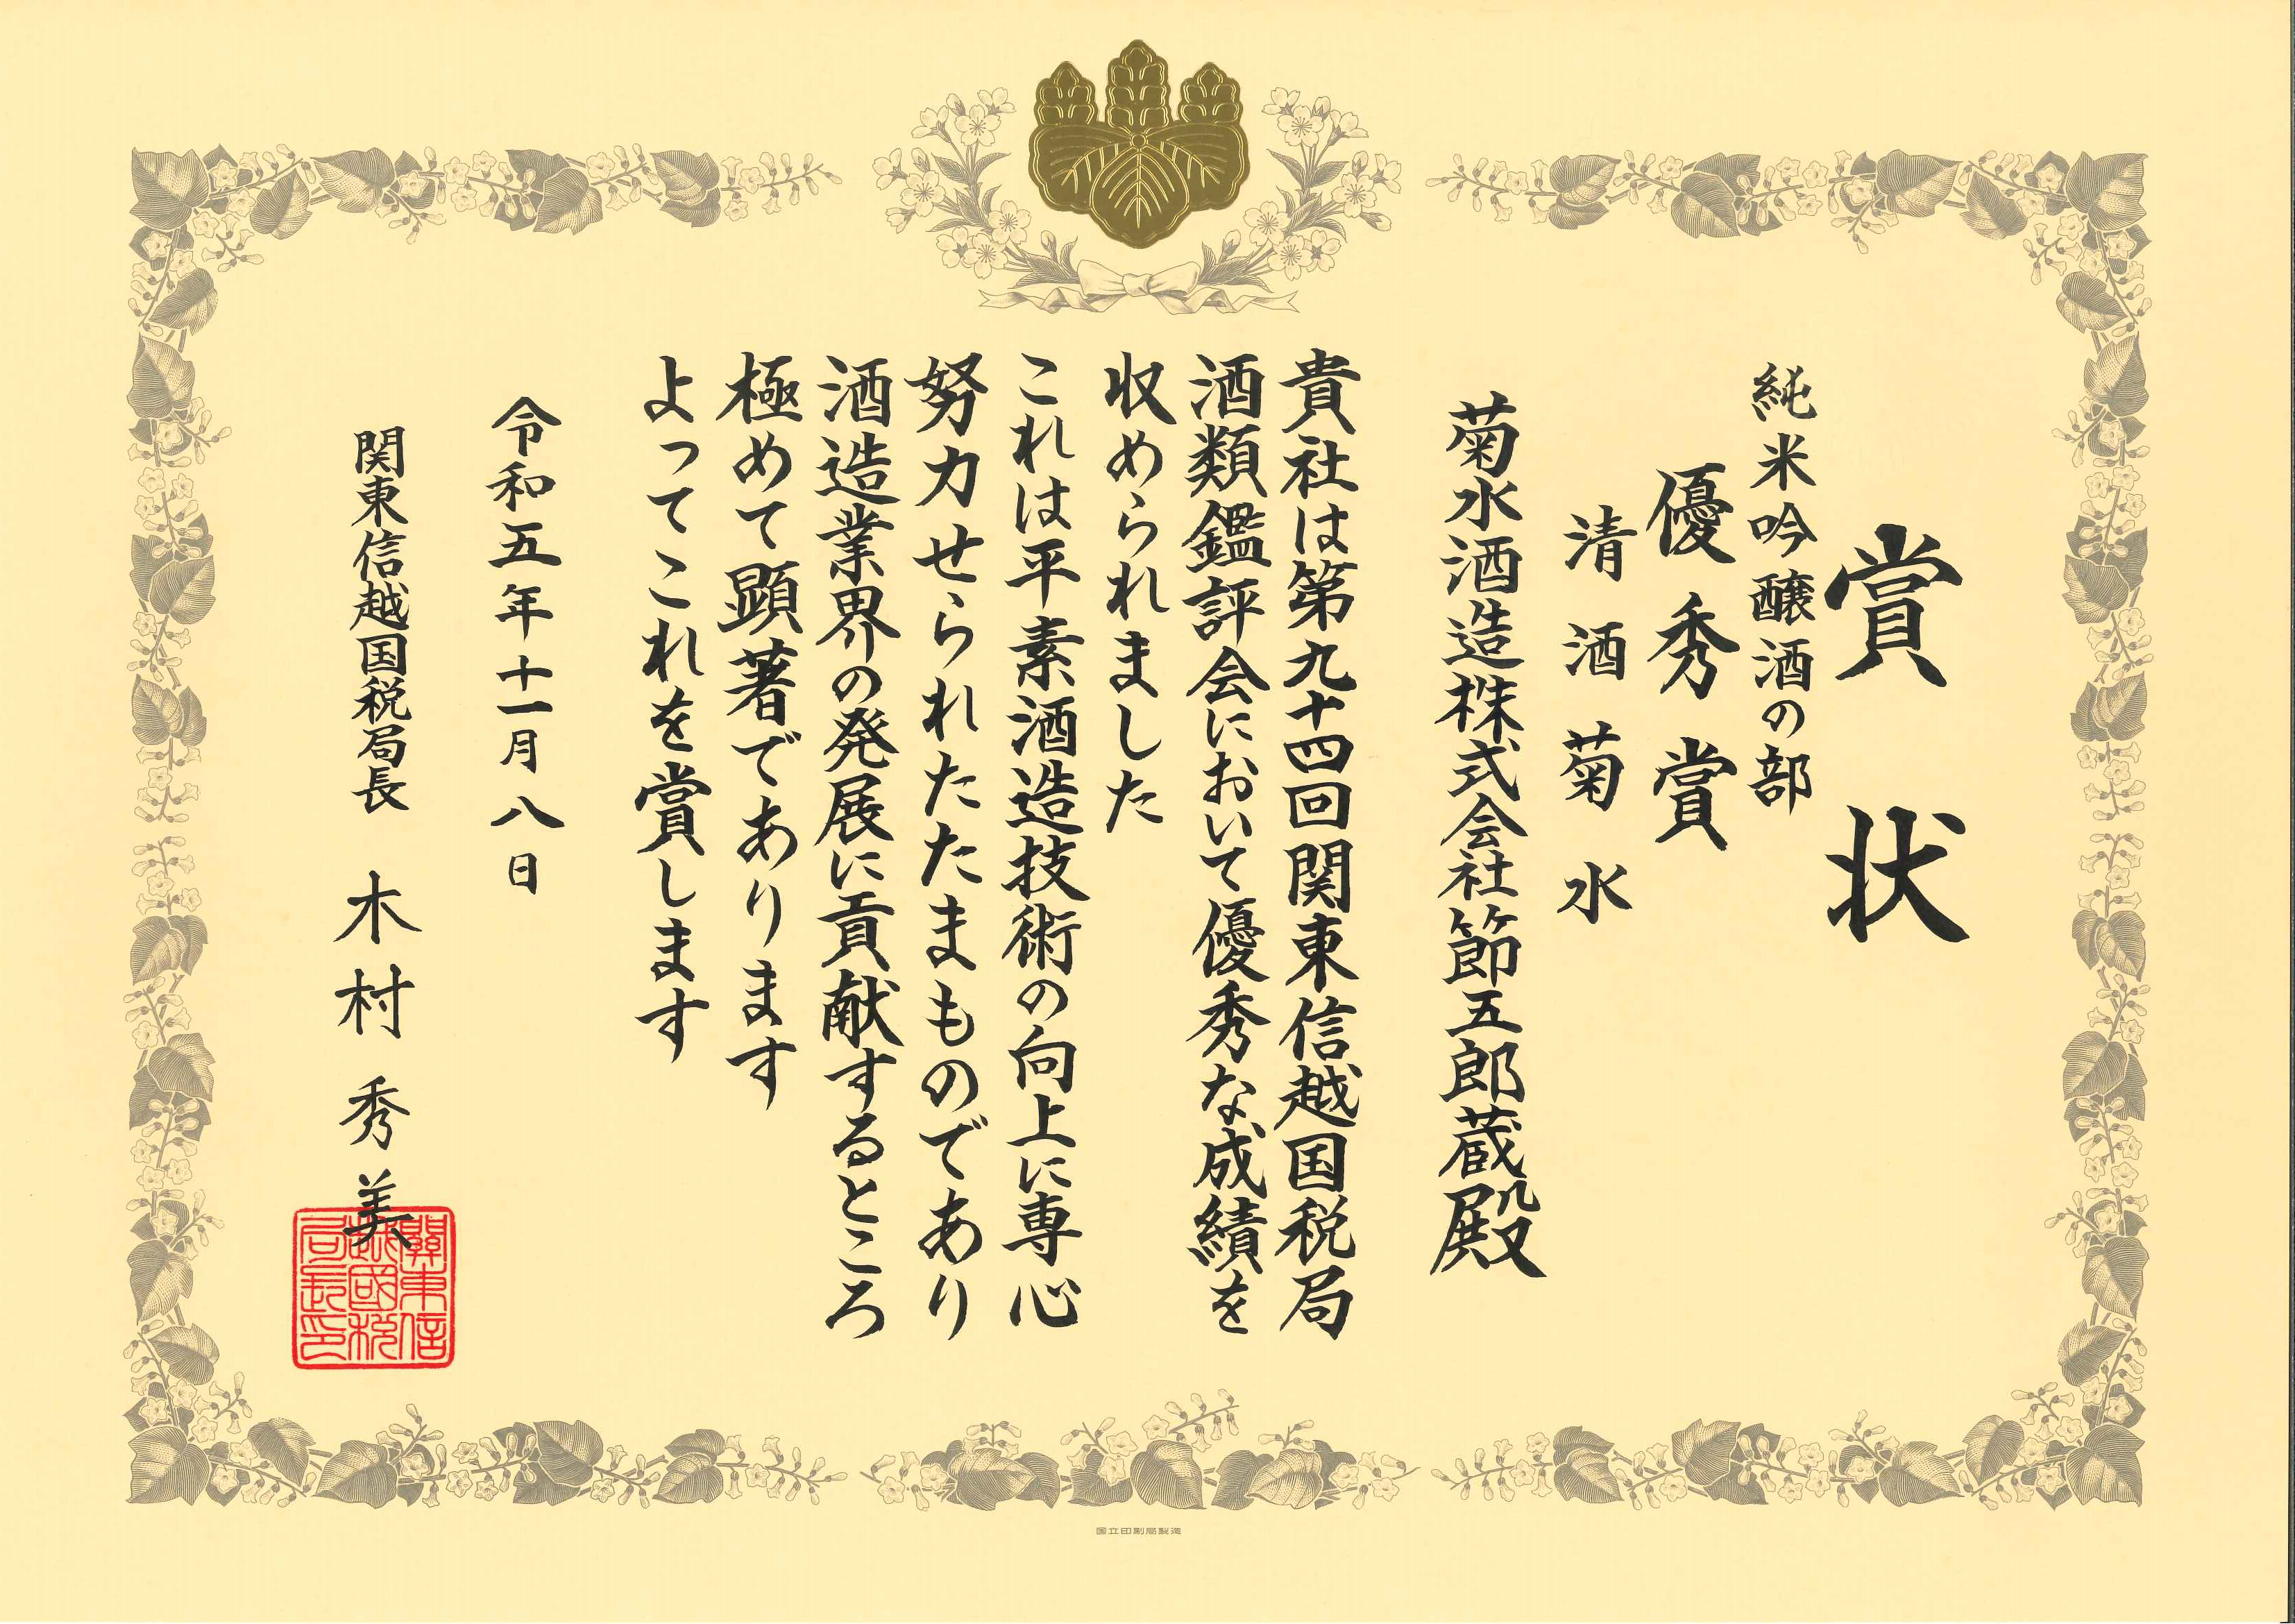 賞状
純米吟醸酒の部
優秀賞
清酒菊水
菊水酒造株式会社節五郎蔵殿
貴社は第九十四回関東信越国税局
酒類鑑評会において優秀な成績を
収められました
これは平素酒造技術の向上に専心
努力せられたたまものであり
酒造業界の発展に貢献するところ
極めて顕著であります
よってこれを賞します
令和五年十一月八日
関東信越国税局長 木村秀美
關東信
越國税
局長印
国立印刷局製造